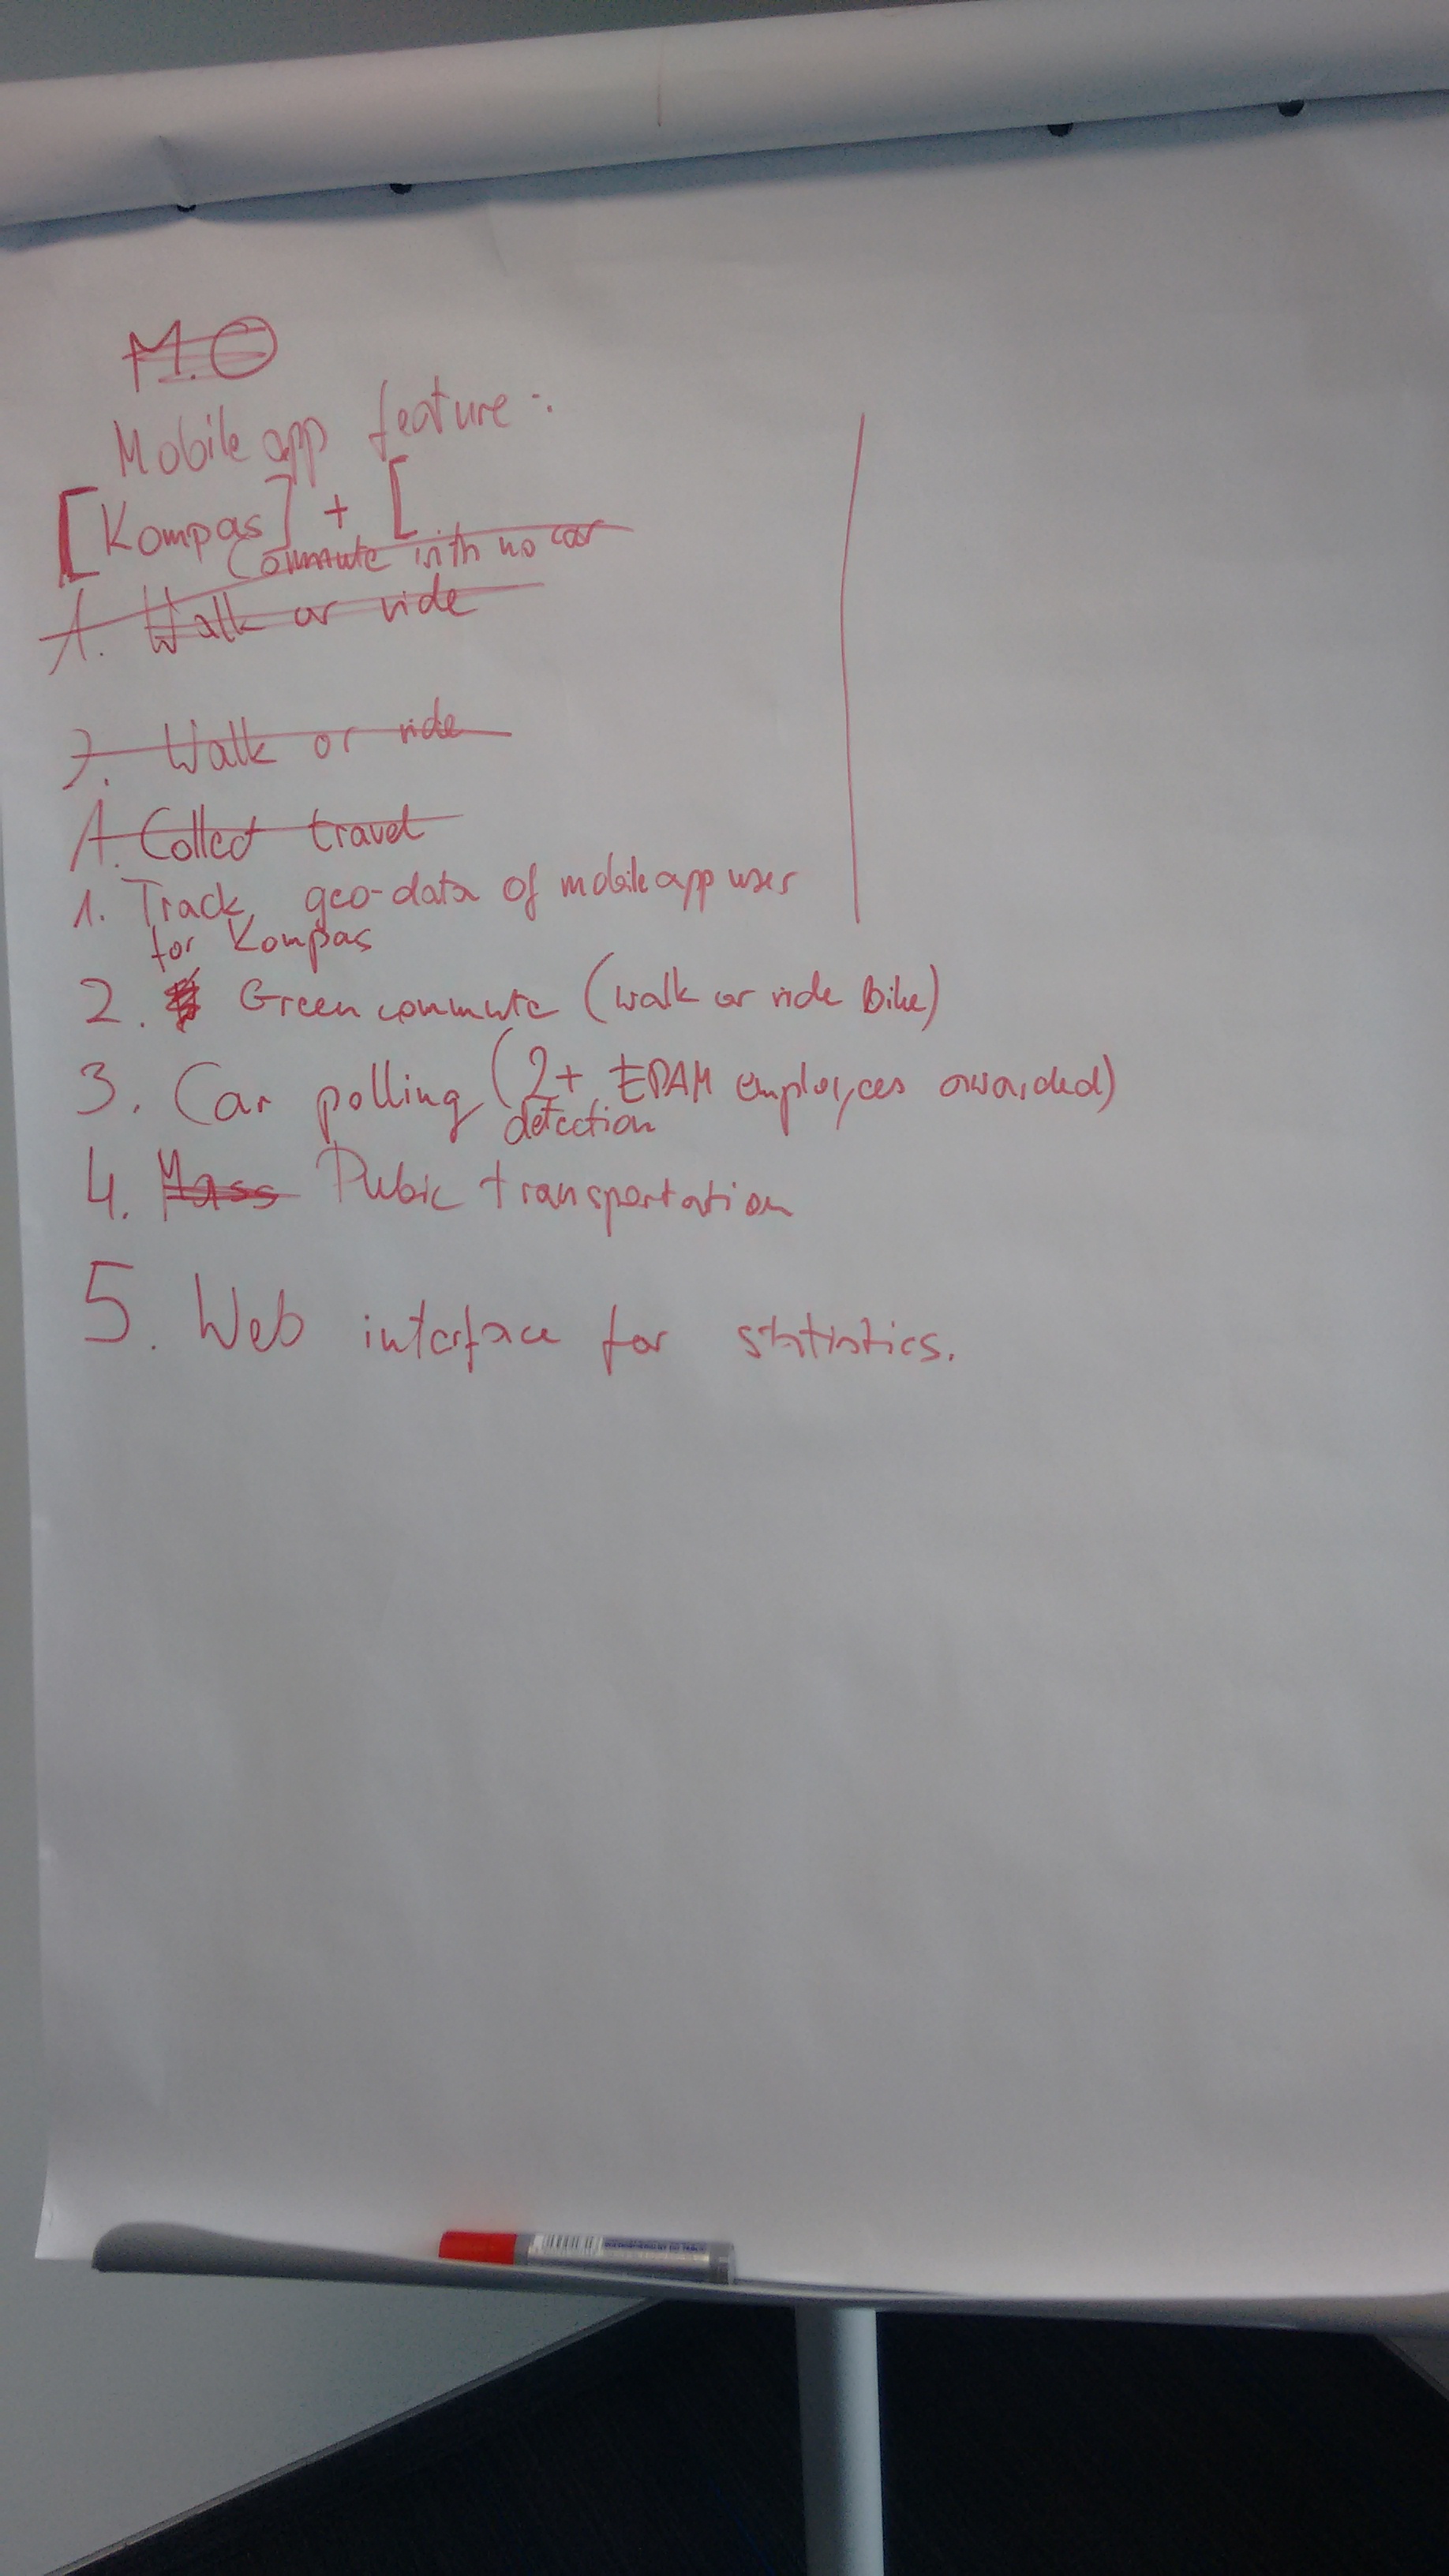 M.
Mobile app feature:
[Kompas] + [
Commute with no car
1. Walk or ride
2. Walk or ride
1. Collect travel
1. Track geo-data of mobile app users
for Kompas
2. Green commute (walk or ride bike)
3. Car polling (2+ EPAM employees awarded)
detection
4. Mass Pubic transportation
5. Web interface for statistics.